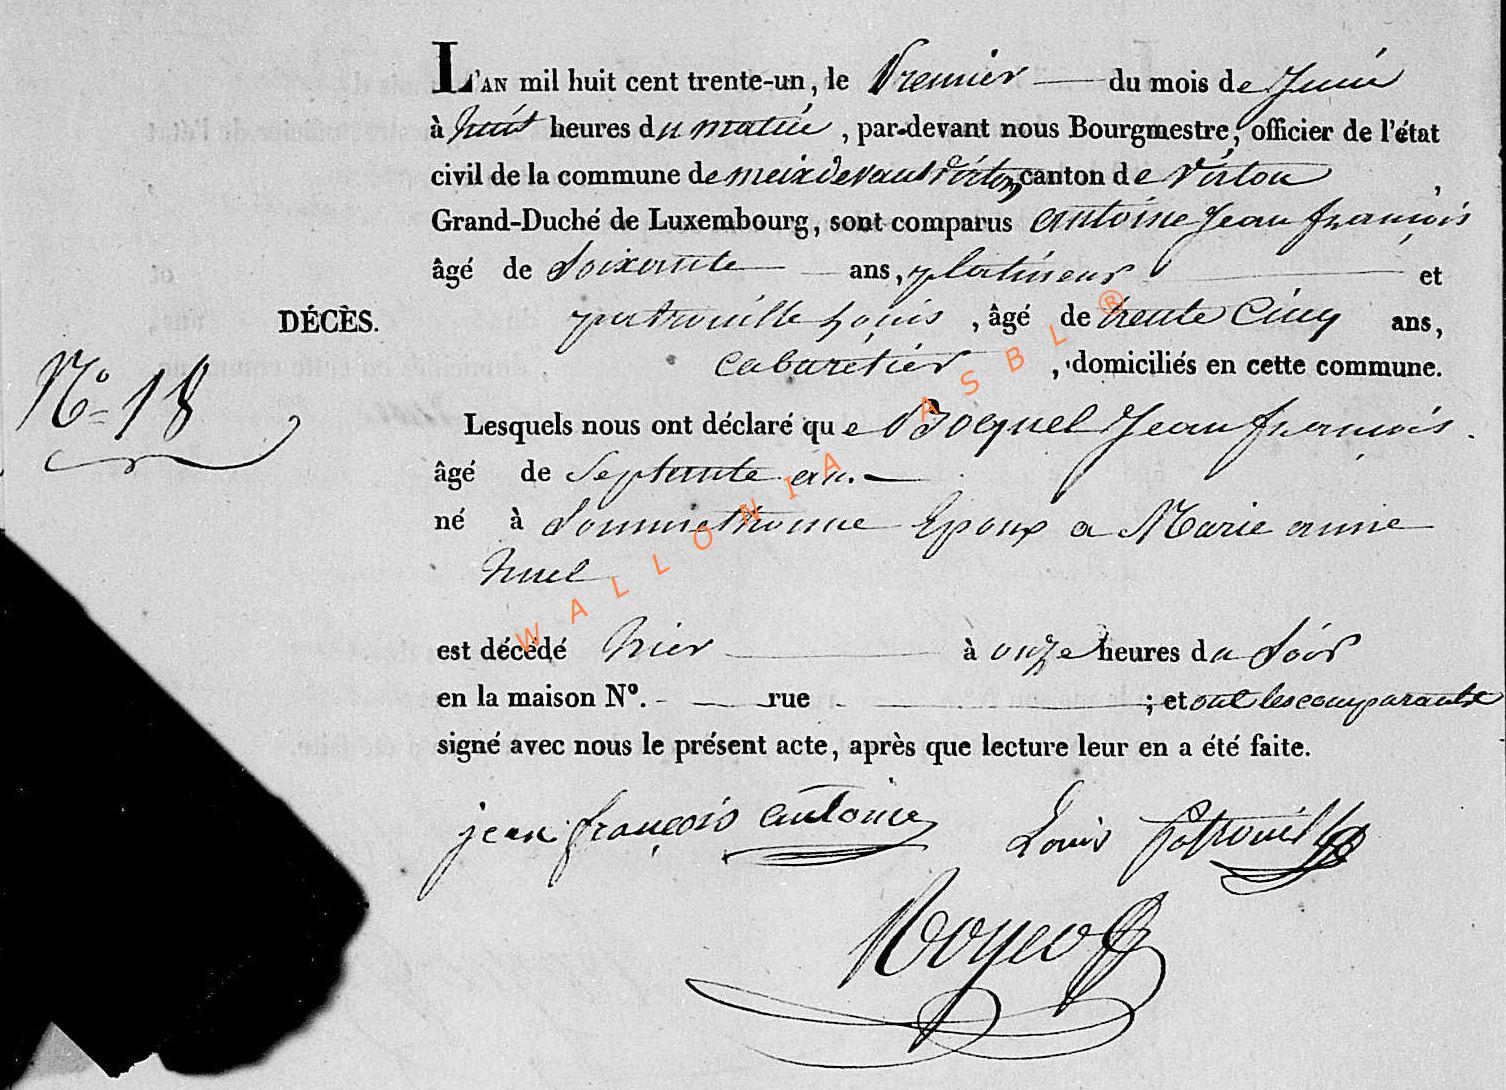 L'AN mil huit cent trente-un, le Premier du mois de Juin
à huit heures du matin, par-devant nous Bourgmestre, officier de l'état
civil de la commune de meix devant virton canton de virton,
Grand-Duché de Luxembourg, sont comparus antoine Jean françois
âgé de Soixante ans, et
patrouille Louis, âgé de trente Cinq ans,
DÉCÈS.
cabaretier, domiciliés en cette commune.
N° 18
Lesquels nous ont déclaré que Bocquel Jean françois.
âgé de Septante an.
né à Sommethonne Epoux a Marie anne
huel
est décédé hier à onze heures du Soir
en la maison N°. rue ; et ont les comparants
signé avec nous le présent acte, après que lecture leur en a été faite.
jean françois antoine Louis Patrouille
WALLONIA ASBL ®